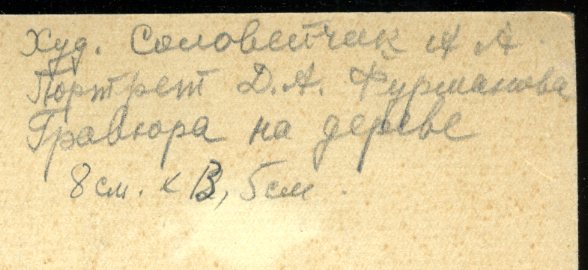 Худ. Соловейчик А А.
Портрет Д.А. Фурманова
Гравюра на дереве
8 см. х 8,5 см.